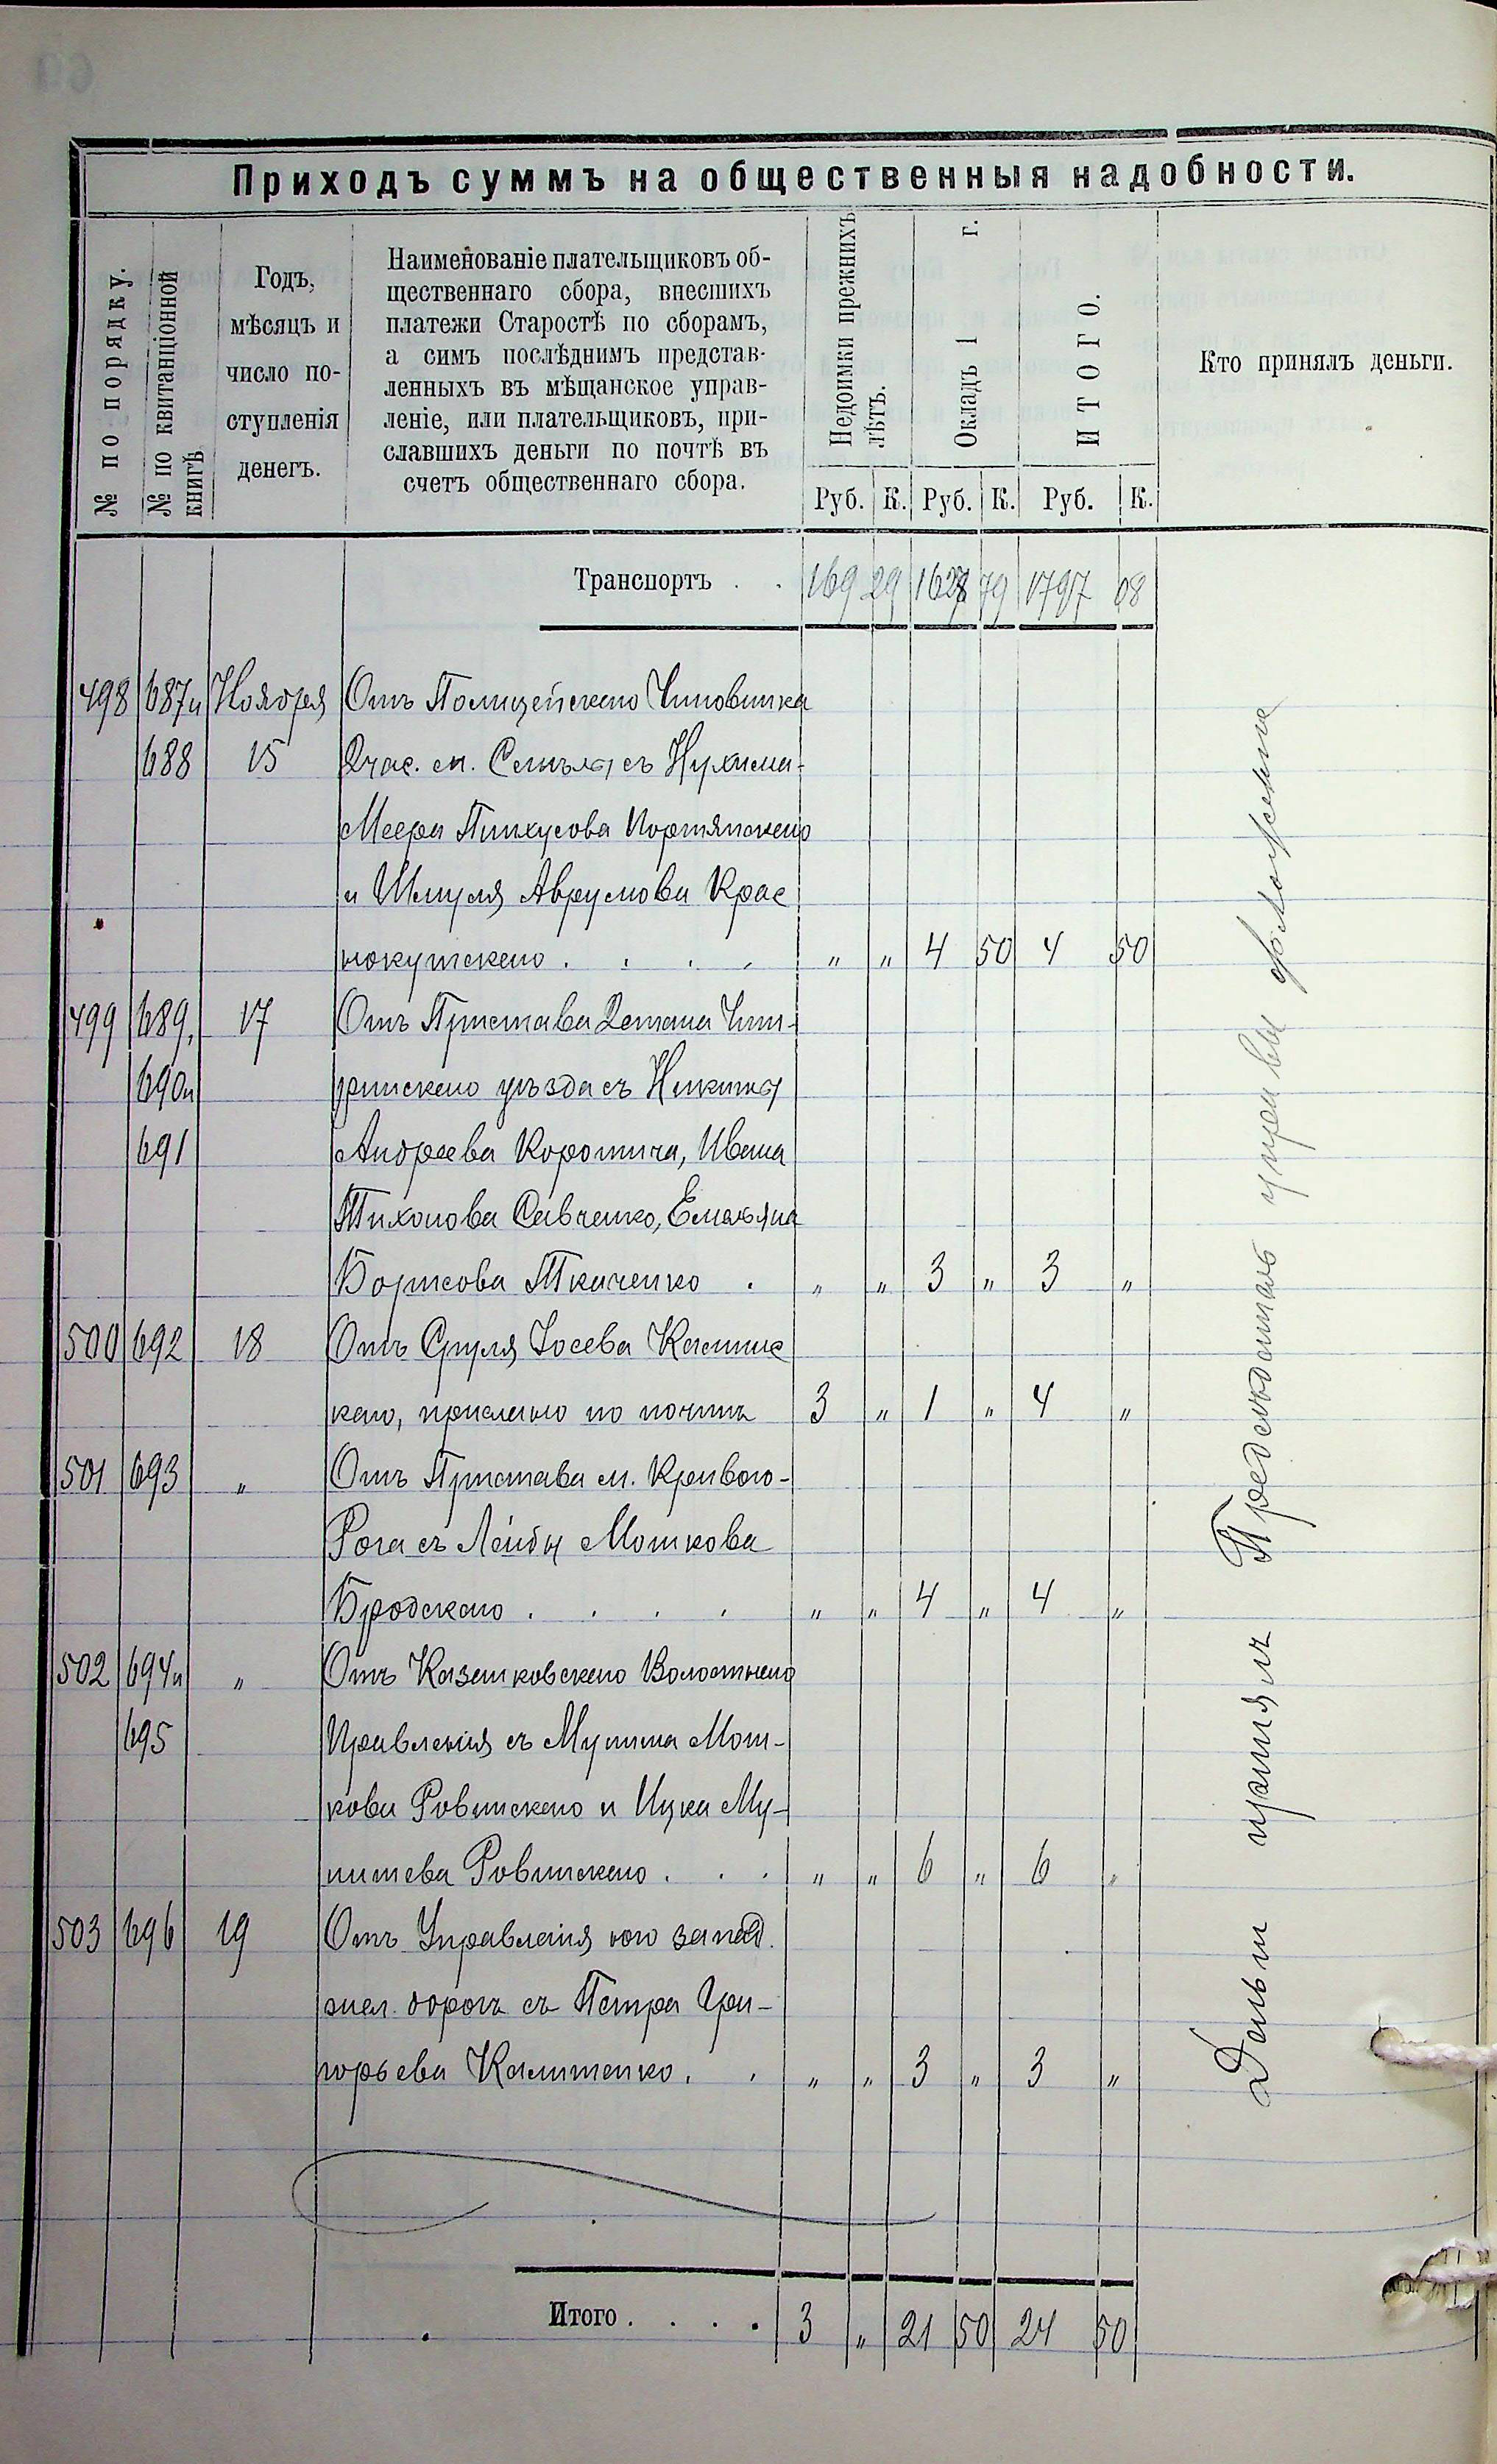 Приходъ суммъ на общественныя надобности.
№ по порядку.
№ по квитанціонной книгѣ.
Годъ, мѣсяцъ и число поступленія денегъ.
Наименованіе плательщиковъ об-
щественнаго сбора, внесшихъ
платежи Старостѣ по сборамъ,
а симъ послѣднимъ представ-
ленныхъ въ мѣщанское управ-
леніе, или плательщиковъ, при-
славшихъ деньги по почтѣ въ
счетъ общественнаго сбора.
Недоимки прежнихъ лѣтъ.
Окладъ 1 г.
ИТОГО.
Кто принялъ деньги.
Руб. К. Руб. К. Руб. К.
Транспортъ . . 169 29 1627 79 1797 08
498 687 и Ноября Отъ Полицейскаго Чиновника
688 15 2 час. м. Смѣлы съ Нухима-
Меера Пинхусова Портянскаго
и Шмуля Аврумова Крас
нокутскаго . . . . " " 4 50 4 50
499 689, 17 Отъ Пристава 2 стана Чиги-
690 и ринскаго уѣзда съ Никиты
691 Андреева Коротича, Ивана
Тихонова Савченко, Емельяна
Борисова Ткаченко . " " 3 " 3 "
500 692 18 Отъ Сруля Іосева Каминс
каго, прислано по почтѣ 3 " 1 " 4 "
501 693 " Отъ Пристава м. Кривого-
Рога съ Лейбы Мошкова
Бродскаго . . . . " " 4 " 4 "
502 694 и " Отъ Волостного
695 Правленія съ Муниша Мош-
кова Ровинскаго и Ицка Му-
нишева Ровинскаго . . . " " 6 " 6 "
503 696 19 Отъ Управленія юго запад.
жел. дорогъ съ Петра Гри-
горьева Калитенко . . " " 3 " 3 "
Итого . . . . 3 " 21 50 24 50
Деньги принялъ Предсѣдатель управы